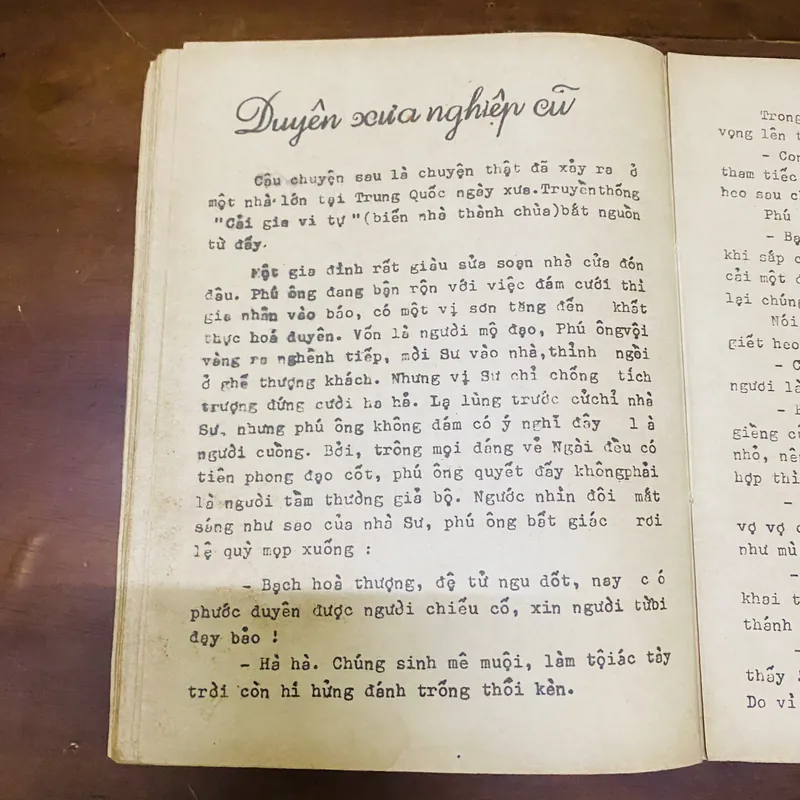 Duyên xưa nghiệp cũ
Câu chuyện sau là chuyện thật đã xảy ra ở
một nhà lớn tại Trung Quốc ngày xưa.Truyềnthống
"Cải gia vi tự"(biến nhà thành chùa)bắt nguồn
từ đấy.
Một gia đình rất giàu sửa soạn nhà cửa đón
dâu. Phú ông đang bận rộn với việc đám cưới thì
gia nhân vào báo, có một vị sơn tăng đến khất
thực hoá duyên. Vốn là người mộ đạo, Phú ôngvội
vàng ra nghênh tiếp, mời Sư vào nhà,thỉnh ngồi
ở ghế thượng khách. Nhưng vị Sư chỉ chống tích
trượng đứng cười ha hả. Lạ lùng trước cửchỉ nhà
Sư, nhưng phú ông không dám có ý nghĩ đây là
người cuồng. Bởi, trông mọi dáng vẻ Ngài đều có
tiên phong đạo cốt, phú ông quyết đấy khôngphải
là người tầm thường giả bộ. Ngước nhìn đôi mắt
sáng như sao của nhà Sư, phú ông bất giác rơi
lệ quỳ mọp xuống :
- Bạch hoà thượng, đệ tử ngu dốt, nay có
phước duyên được người chiếu cố, xin người từbi
dạy bảo !
- Hà hà. Chúng sinh mê muội, làm tộiác tày
trời còn hí hửng đánh trống thổi kèn.
Trong
vọng lên
- Con
tham tiếc
heo sau
Phú
- Bạ
khi sắp
cải một
lại chúng
Nói
giết heo
- C
người là
giềng
nhỏ,
hợp thì
-
vợ vợ
như mù
-
khai
thánh
-
thấy
Do vì